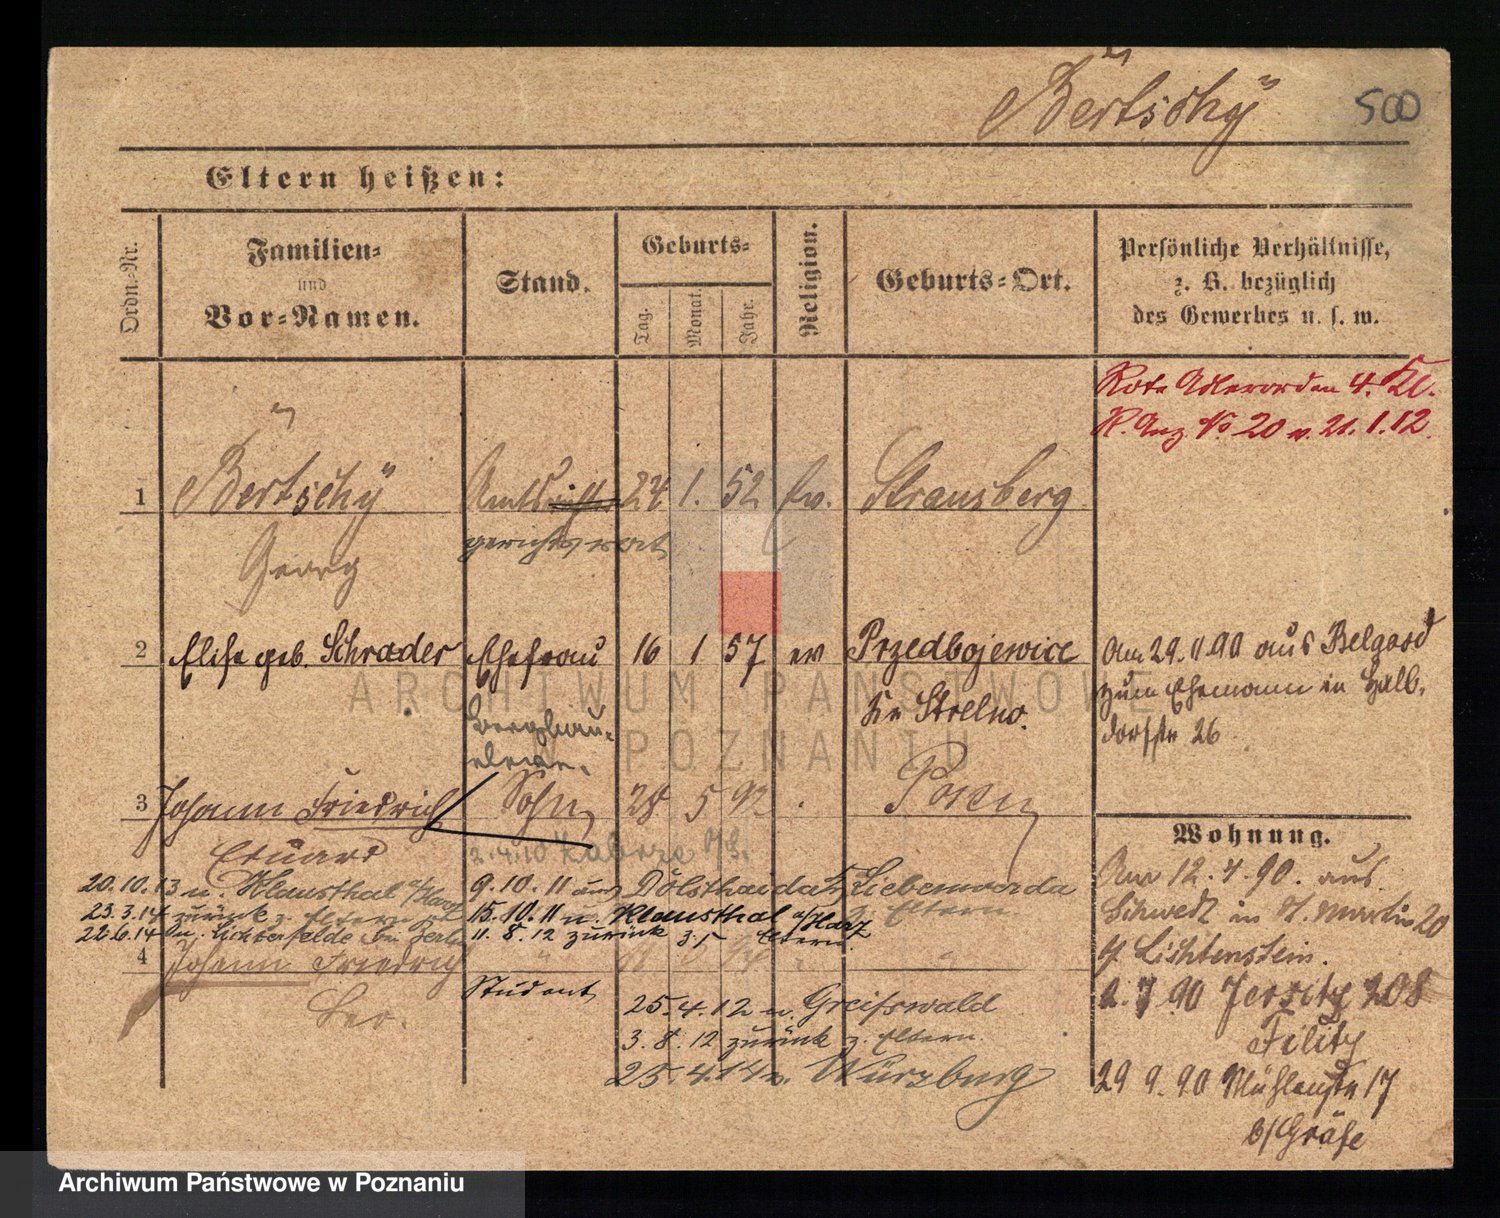 Bertschÿ 500
Eltern heißen:
Ordn.-Nr.
Familien-
und
Vor-Namen.
Stand.
Geburts-
Tag.
Monat.
Jahr.
Religion.
Geburts-Ort.
Persönliche Verhältnisse,
z. B. bezüglich
des Gewerbes u. s. w.
Rote Adlerorden 4. Kl.
R. Anz. No 20 v. 21. 1. 12.
1 Bertschÿ Amtsrichter 24 1. 52 ev. Strausberg
Georg gerichtsrat
2 Elise geb. Schrader Ehefrau 16 1 57 ev Przedbojewice
Kr. Strelno.
Am 29. 11 90 aus Belgard
zum Ehemann in Halb-
dorfstr 26
Bergbau-
eleve.
3 Johann Friedrich Sohn 28 5 92 Posen
Eduard 2.4.10 Zabrze
Wohnung.
20.10.13 n. Klausthal a/Harz 9.10.11 aus Liebenwerda
23.3.14 zurück z. Eltern 15.10.11 n. Klausthal a/Harz
22.6.14 n. Lichterfelde bei Berlin 11. 8. 12 zurück z. Eltern
4 Johann Friedrich
Student
25. 4. 12 n. Greifswald
3. 8. 12 zurück z. Eltern.
25. 4. 14 n. Würzburg
Am 12. 4. 90. aus
Schwedt in St. Martin 20
Lichtenstein.
2. 7 90 Jersitz 208
29 9. 90 Mühlenstr 17
b/ Gräfe
ARCHIWUM PAŃSTWOWE
W POZNANIU
Archiwum Państwowe w Poznaniu